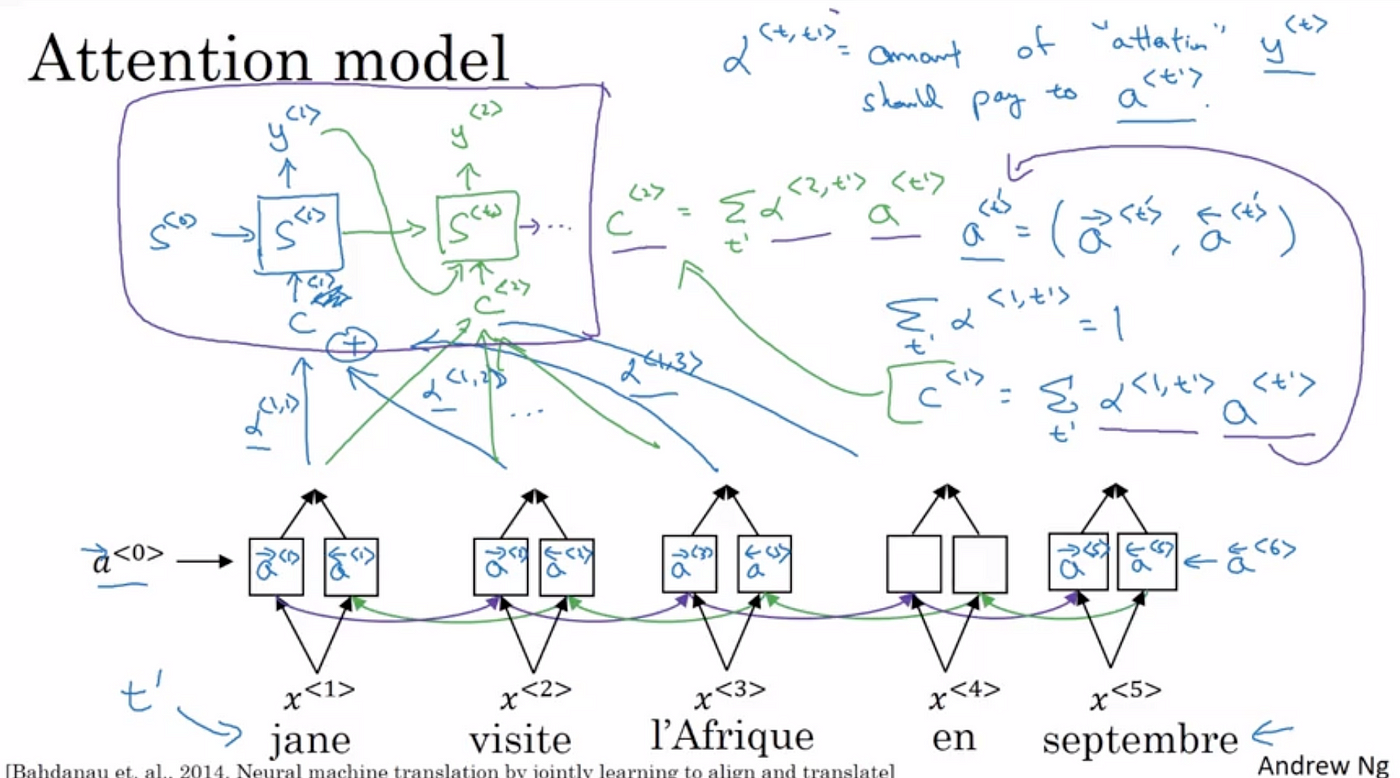 Attention model
α^{<t,t'>} = amount of "attention" y^{<t>}
should pay to a^{<t'>}.
y^{<1>} y^{<2>}
S^{<0>} → S^{<1>} → S^{<2>} → ...
C^{<1>} C^{<2>}
+
C^{<2>} = Σ_{t'} α^{<2,t'>} a^{<t'>}
a^{<t'>} = (→a^{<t'>}, ←a^{<t'>})
Σ_{t'} α^{<1,t'>} = 1
C^{<1>} = Σ_{t'} α^{<1,t'>} a^{<t'>}
α^{<1,1>} α^{<1,2>} ... α^{<1,3>}
→a^{<0>} → →a^{<1>} ←a^{<1>} →a^{<2>} ←a^{<2>} →a^{<3>} ←a^{<3>} →a^{<5>} ←a^{<5>} ← ←a^{<6>}
t'
x^{<1>} x^{<2>} x^{<3>} x^{<4>} x^{<5>}
jane visite l'Afrique en septembre
[Bahdanau et. al., 2014. Neural machine translation by jointly learning to align and translate]
Andrew Ng